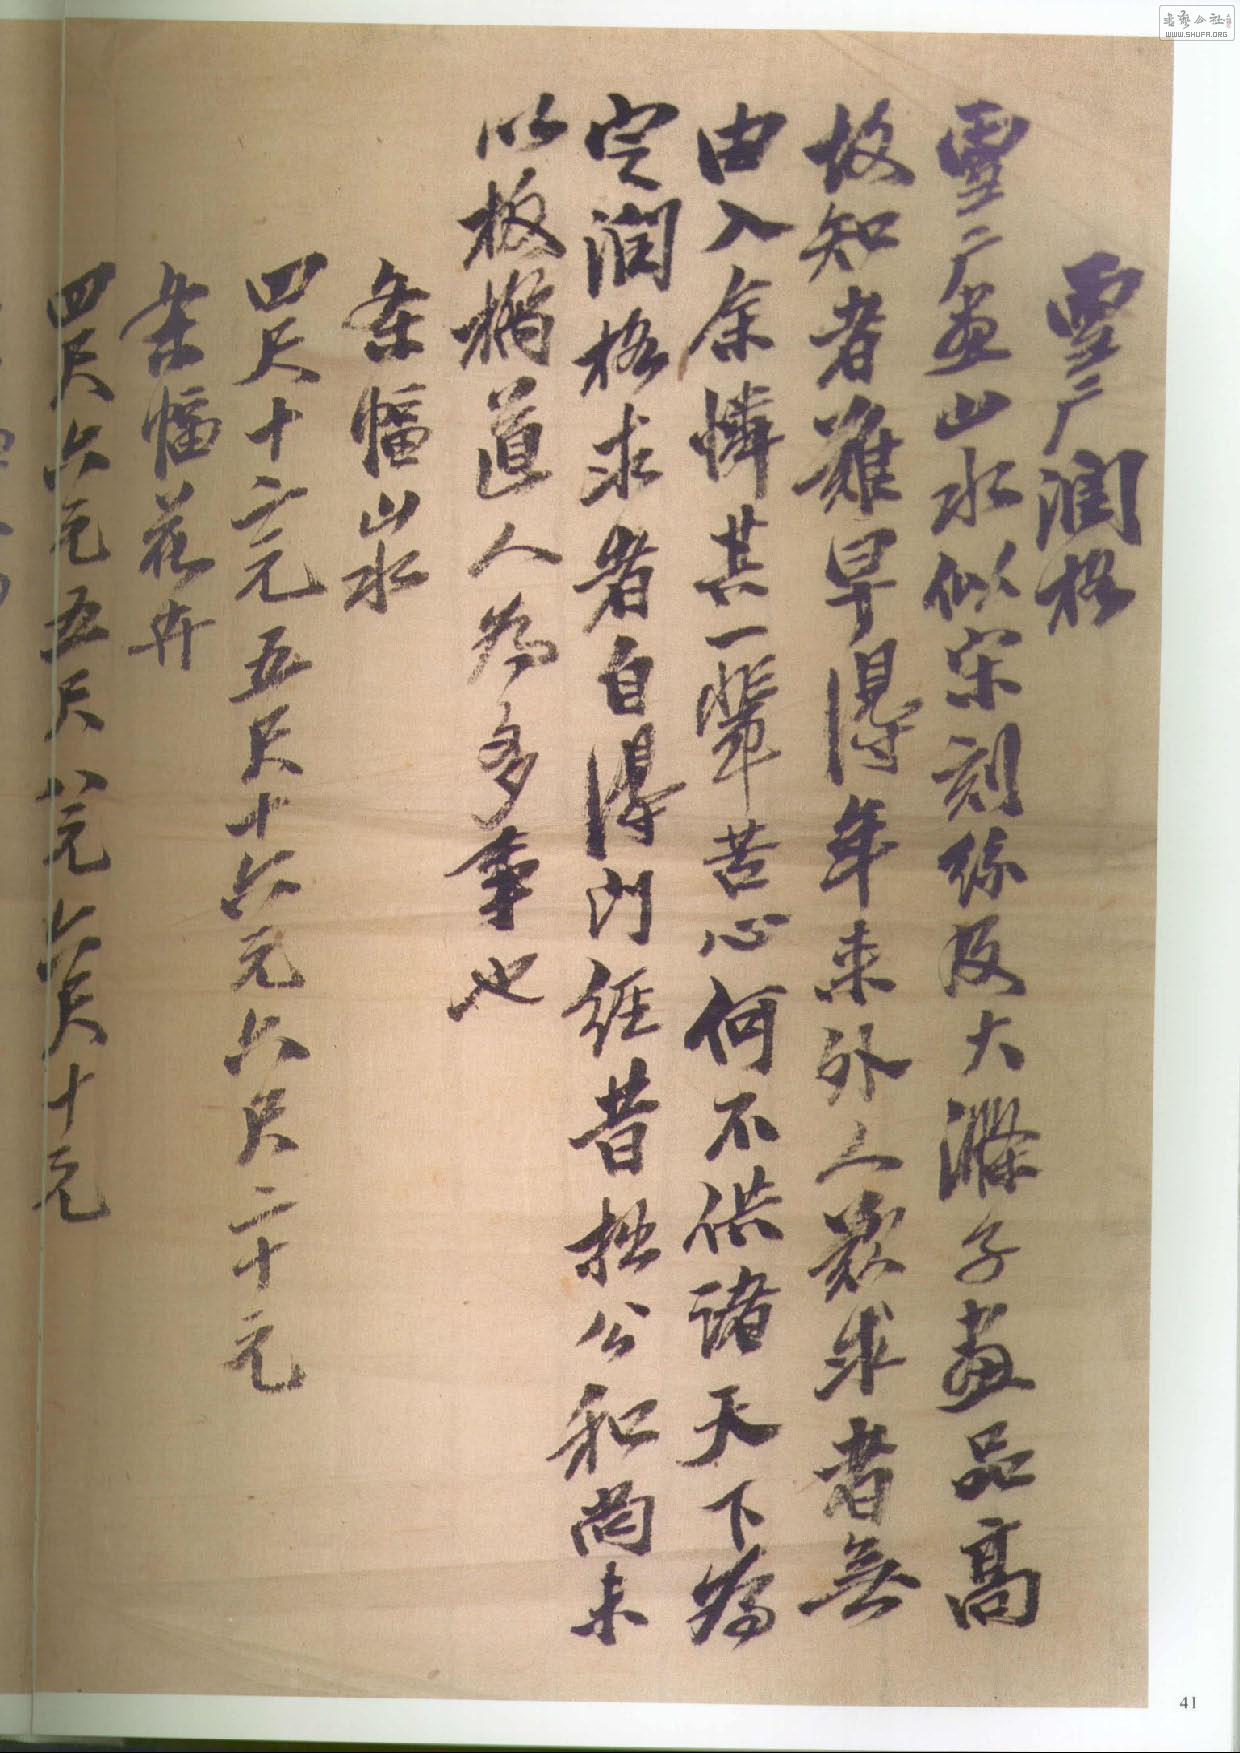 雪广润格
雪广画山水似宋刻丝及大涤子画品高
故知者难早得年来外人丛求者无
由入余怜其一辈苦心何不供诸天下为
定润格求者自得门径昔拙公和尚未
以板桥道人为多事也
条幅山水
四尺十二元五尺十六元六尺二十元
条幅花卉
四尺六元五尺八元六尺十元
41
书艺公社
WWW.SHUFA.ORG